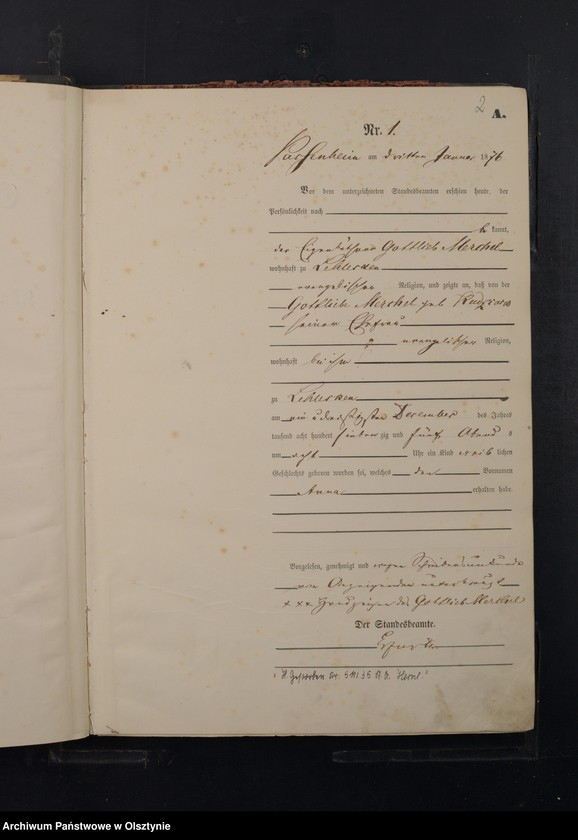 2
A.
Nr. 1.
Passenheim am dritten Januar 1876
Vor dem unterzeichneten Standesbeamten erschien heute, der
Persönlichkeit nach
be kannt,
der Eigenkäthner Gottlieb Merchel
wohnhaft zu Lehlesken
evangelischer Religion, und zeigte an, daß von der
Gottliebe Merchel geb.
seiner Ehefrau
evangelischer Religion,
wohnhaft bei ihm
zu Lehlesken
am ein u dreißigsten December des Jahres
tausend acht hundert siebenzig und fünf Abend s
um acht Uhr ein Kind weib lichen
Geschlechts geboren worden sei, welches den Vornamen
Anna erhalten habe.
Vorgelesen, genehmigt und wegen Schreibensunkunde
vom Anzeigenden unterkreuzt
+++ Handzeichen des Gottlieb Merchel
Der Standesbeamte.
Archiwum Państwowe w Olsztynie